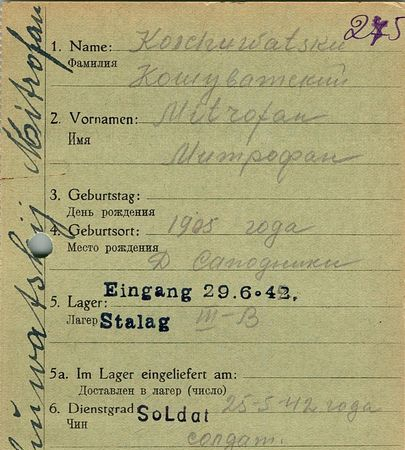 275
1. Name: Koschuwatskii
Фамилия
Кошуватский
2. Vornamen: Mitrofan
Имя
Митрофан
3. Geburtstag:
День рождения
1905 года
4. Geburtsort:
Место рождения
Д Саподники
Eingang 29.6.42.
5. Lager:
Лагерь Stalag III-B
5a. Im Lager eingeliefert am:
Доставлен в лагерь (число)
6. Dienstgrad: Soldat 25-5-42 года
Чин
солдат.
Mitrofan